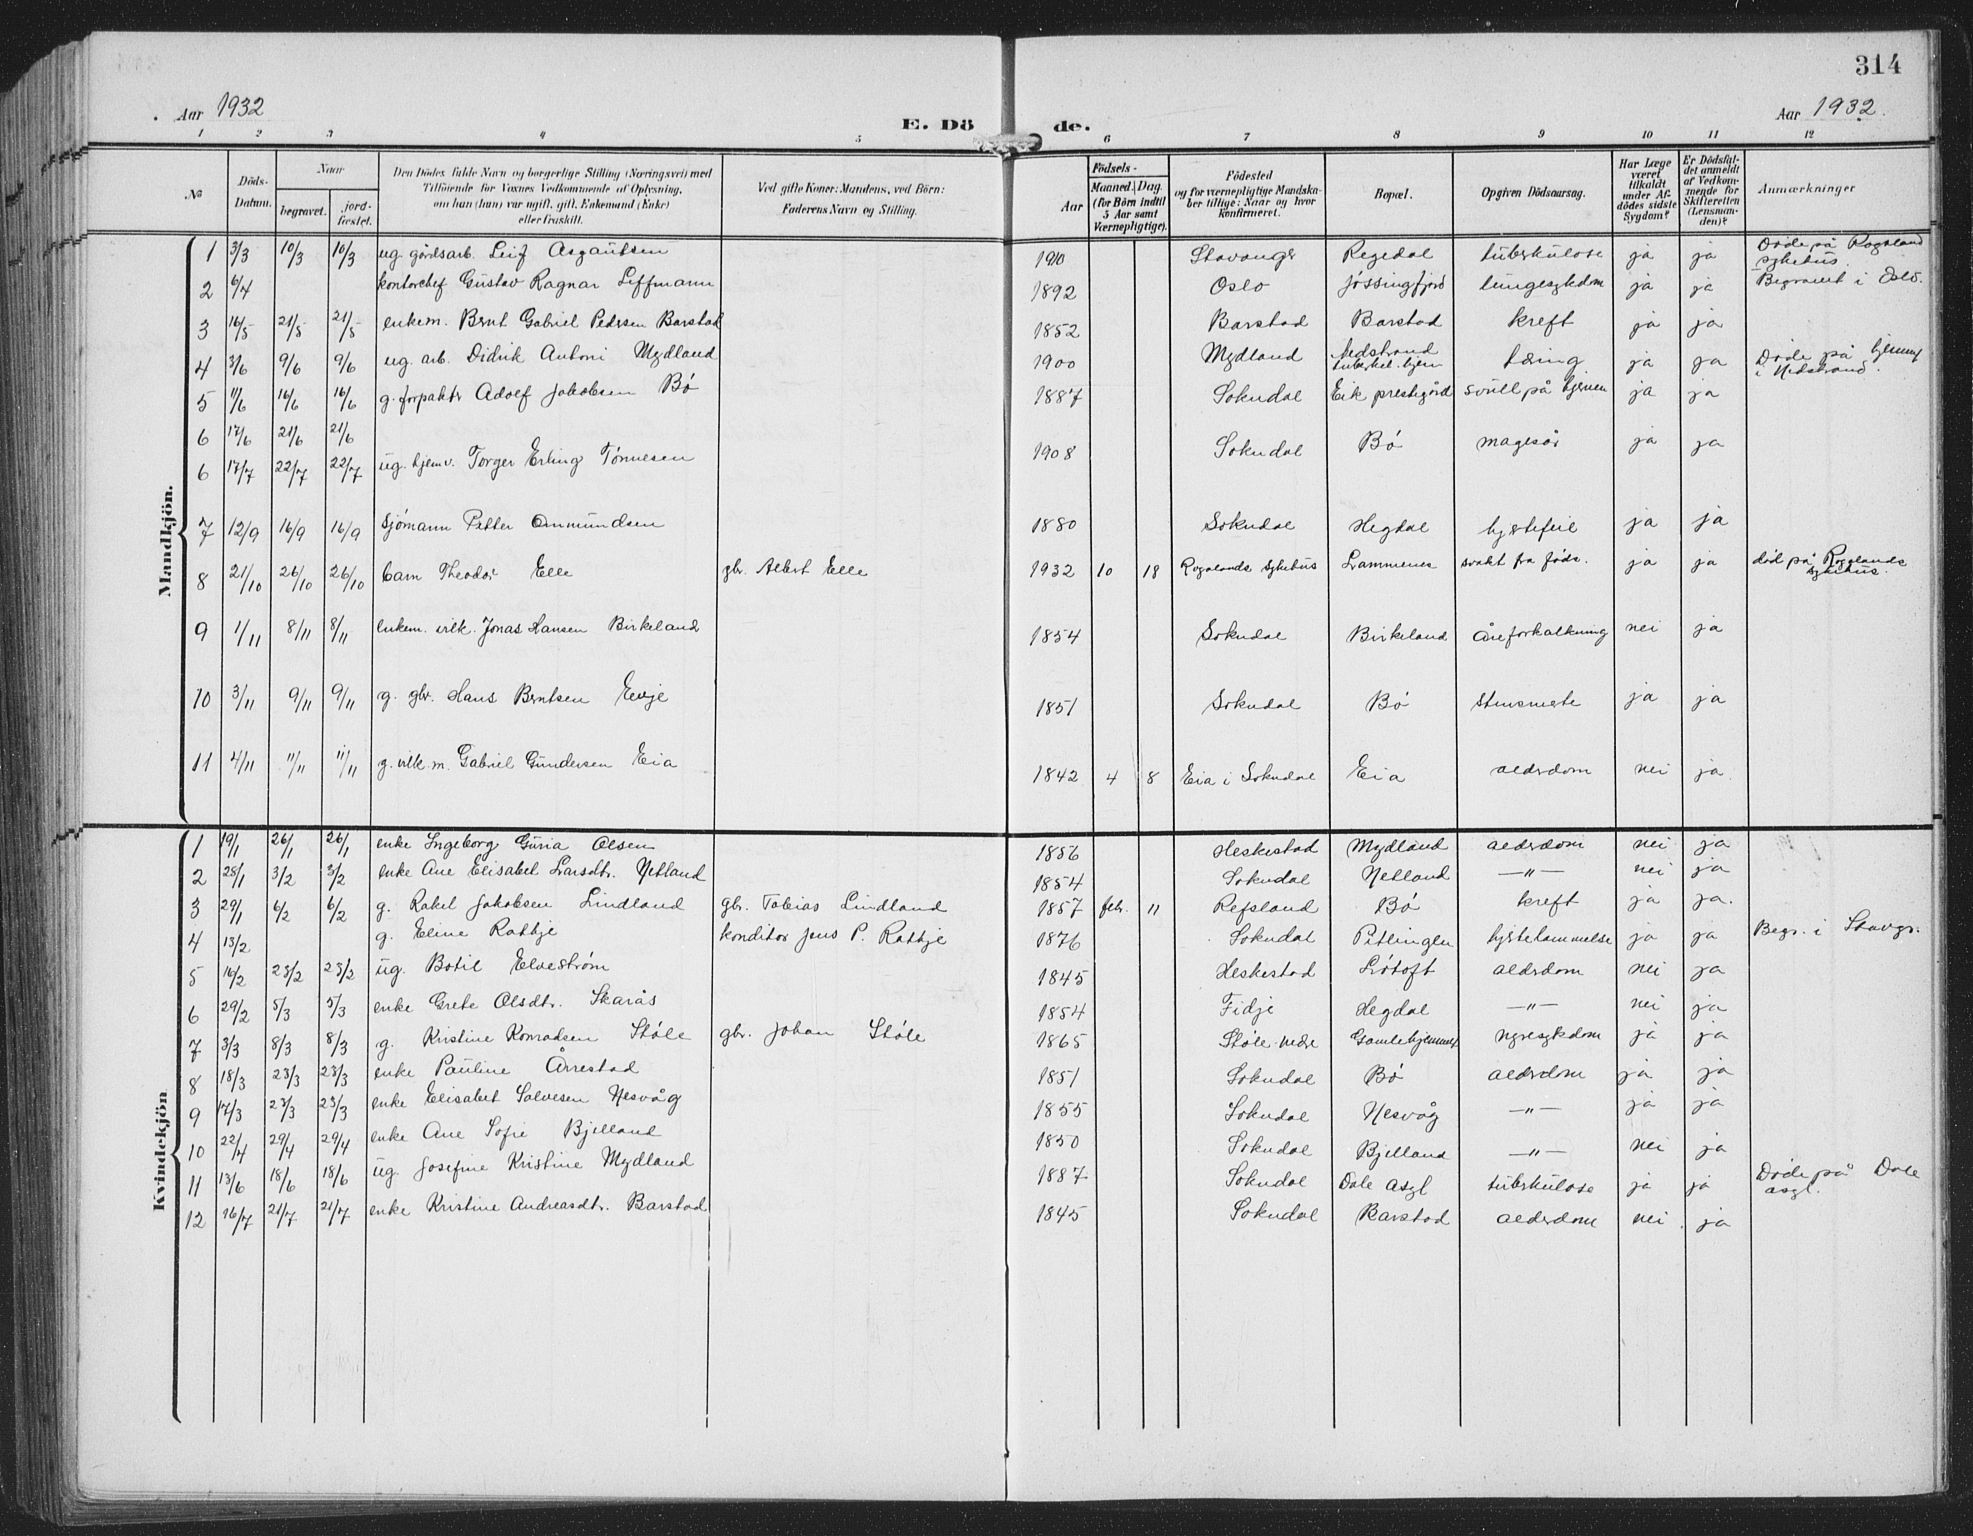 314
Aar 1932 E. Dö de. Aar 1932.
1 2 3 4 5 6 7 8 9 10 11 12
№ Döds-Datum. Naar begravet. jordfæstet. Den Dödes fulde Navn og borgerlige Stilling (Næringsvei) med Tilföiende för Voxnes Vedkommende af Oplysning, om han (hun) var ugift, gift, Enkemand (Enke) eller fraskilt. Ved gifte Koner: Mandens, ved Börn: Faderens Navn og Stilling. Aar Födsels- Maaned. Dag. (for Börn indtil 5 Aar samt Værnepligtige). Födested og for værnepligtige Mandskaber tillige: Naar og hvor konfirmeret. Bopæl. Opgiven Dödsaarsag. Har Læge været tilkaldt under Afdödes sidste Sygdom? Er Dödsfaldet anmeldt af Vedkommende for Skifteretten (Lensmanden)? Anmærkninger
Mandkjön.
1 3/3 10/3 10/3 ug. gårdsarb. Leif Asgautsen 1910 Stavanger Regedal tuberkulose ja ja Døde på Rogaland sykehus.
2 6/4 kontorchef Gustav Ragnar Leffmann 1892 Oslo Jøssingfjord lungesykdom ja ja Begravet i Oslo.
3 16/5 21/5 21/5 enkem. Bernt Gabriel Pedersen Barstad 1852 Barstad Barstad kreft ja ja
4 3/6 9/6 9/6 ug. arb. Didrik Antoni Mydland 1900 Mydland Nedstrand tuberkel.hjem tæring ja ja Døde på hjemmet i Nedstrand.
5 11/6 16/6 16/6 g. forpakter Adolf Jakobsen Bø 1887 Sokndal Eik prestegård svull på hjernen ja ja
6 17/6 21/6 21/6
6 17/7 22/7 22/7 ug. hjemv. Torger Erling Tønnesen 1908 Sokndal Bø magesår ja ja
7 12/9 16/9 16/9 Sjømann Petter Ommundsen 1880 Sokndal Hegdal hjertefeil ja ja
8 21/10 26/10 26/10 barn Theodor Elle gbr. Albert Elle 1932 10 18 Rogalands sykehus Lrammenes svakt fra føds. ja ja død på Rogalands sykehus.
9 1/11 8/11 8/11 enkem. vilk. Jonas Hansen Birkeland 1854 Sokndal Birkeland Åreforkalkning nei ja
10 3/11 9/11 9/11 g. gbr. Hans Berntsen Eevje 1851 Sokndal Bø ja ja
11 4/11 11/11 11/11 g. vilk.m. Gabriel Gundersen Eia 1842 4 8 Eia i Sokndal Eia alderdom nei ja.
Kvindekjön
1 19/1 26/1 26/1 enke Ingeborg Guria Olsen 1856 Heskestad Mydland alderdom nei ja
2 28/1 3/2 3/2 enke Ane Elisabet Larsdtr. Netland 1854 Sokndal Netland —"— nei ja
3 29/1 6/2 6/2 g. Rakel Jakobsen Lindland gbr. Tobias Lindland 1857 febr. 11 Refsland Bø kreft ja ja.
4 13/2 g. Eline Rathje konditor Jens P. Rathje 1876 Sokndal Petlingen hjertelammelse ja ja Begr. i Stavgr.
5 16/2 23/2 23/2 ug. Botil Elvestrøm 1845 Heskestad Løtoft alderdom nei ja
6 29/2 5/3 5/3 enke Grete Olsdtr. Skarås 1854 Fidje Hegdal —"— nei ja
7 3/3 8/3 8/3 g. Kristine Konradsen Støle gbr. Johan Støle 1865 Støle nedre Gamlehjemmet nyresykdom ja ja
8 18/3 23/3 23/3 enke Pauline Årrestad 1851 Sokndal Bø alderdom ja ja
9 17/3 23/3 23/3 enke Elisabet Salvesen Nesvåg 1855 Sokndal Nesvåg —"— ja ja
10 22/4 29/4 29/4 enke Ane Sofie Bjelland 1850 Sokndal Bjelland —"— nei ja
11 13/6 18/6 18/6 ug. Josefine Kristine Mydland 1887 Sokndal Dale asyl tuberkulose ja ja Døde på Dale asyl.
12 16/7 21/7 21/7 enke Kristine Andreasdtr. Barstad 1845 Sokndal Barstad alderdom nei ja